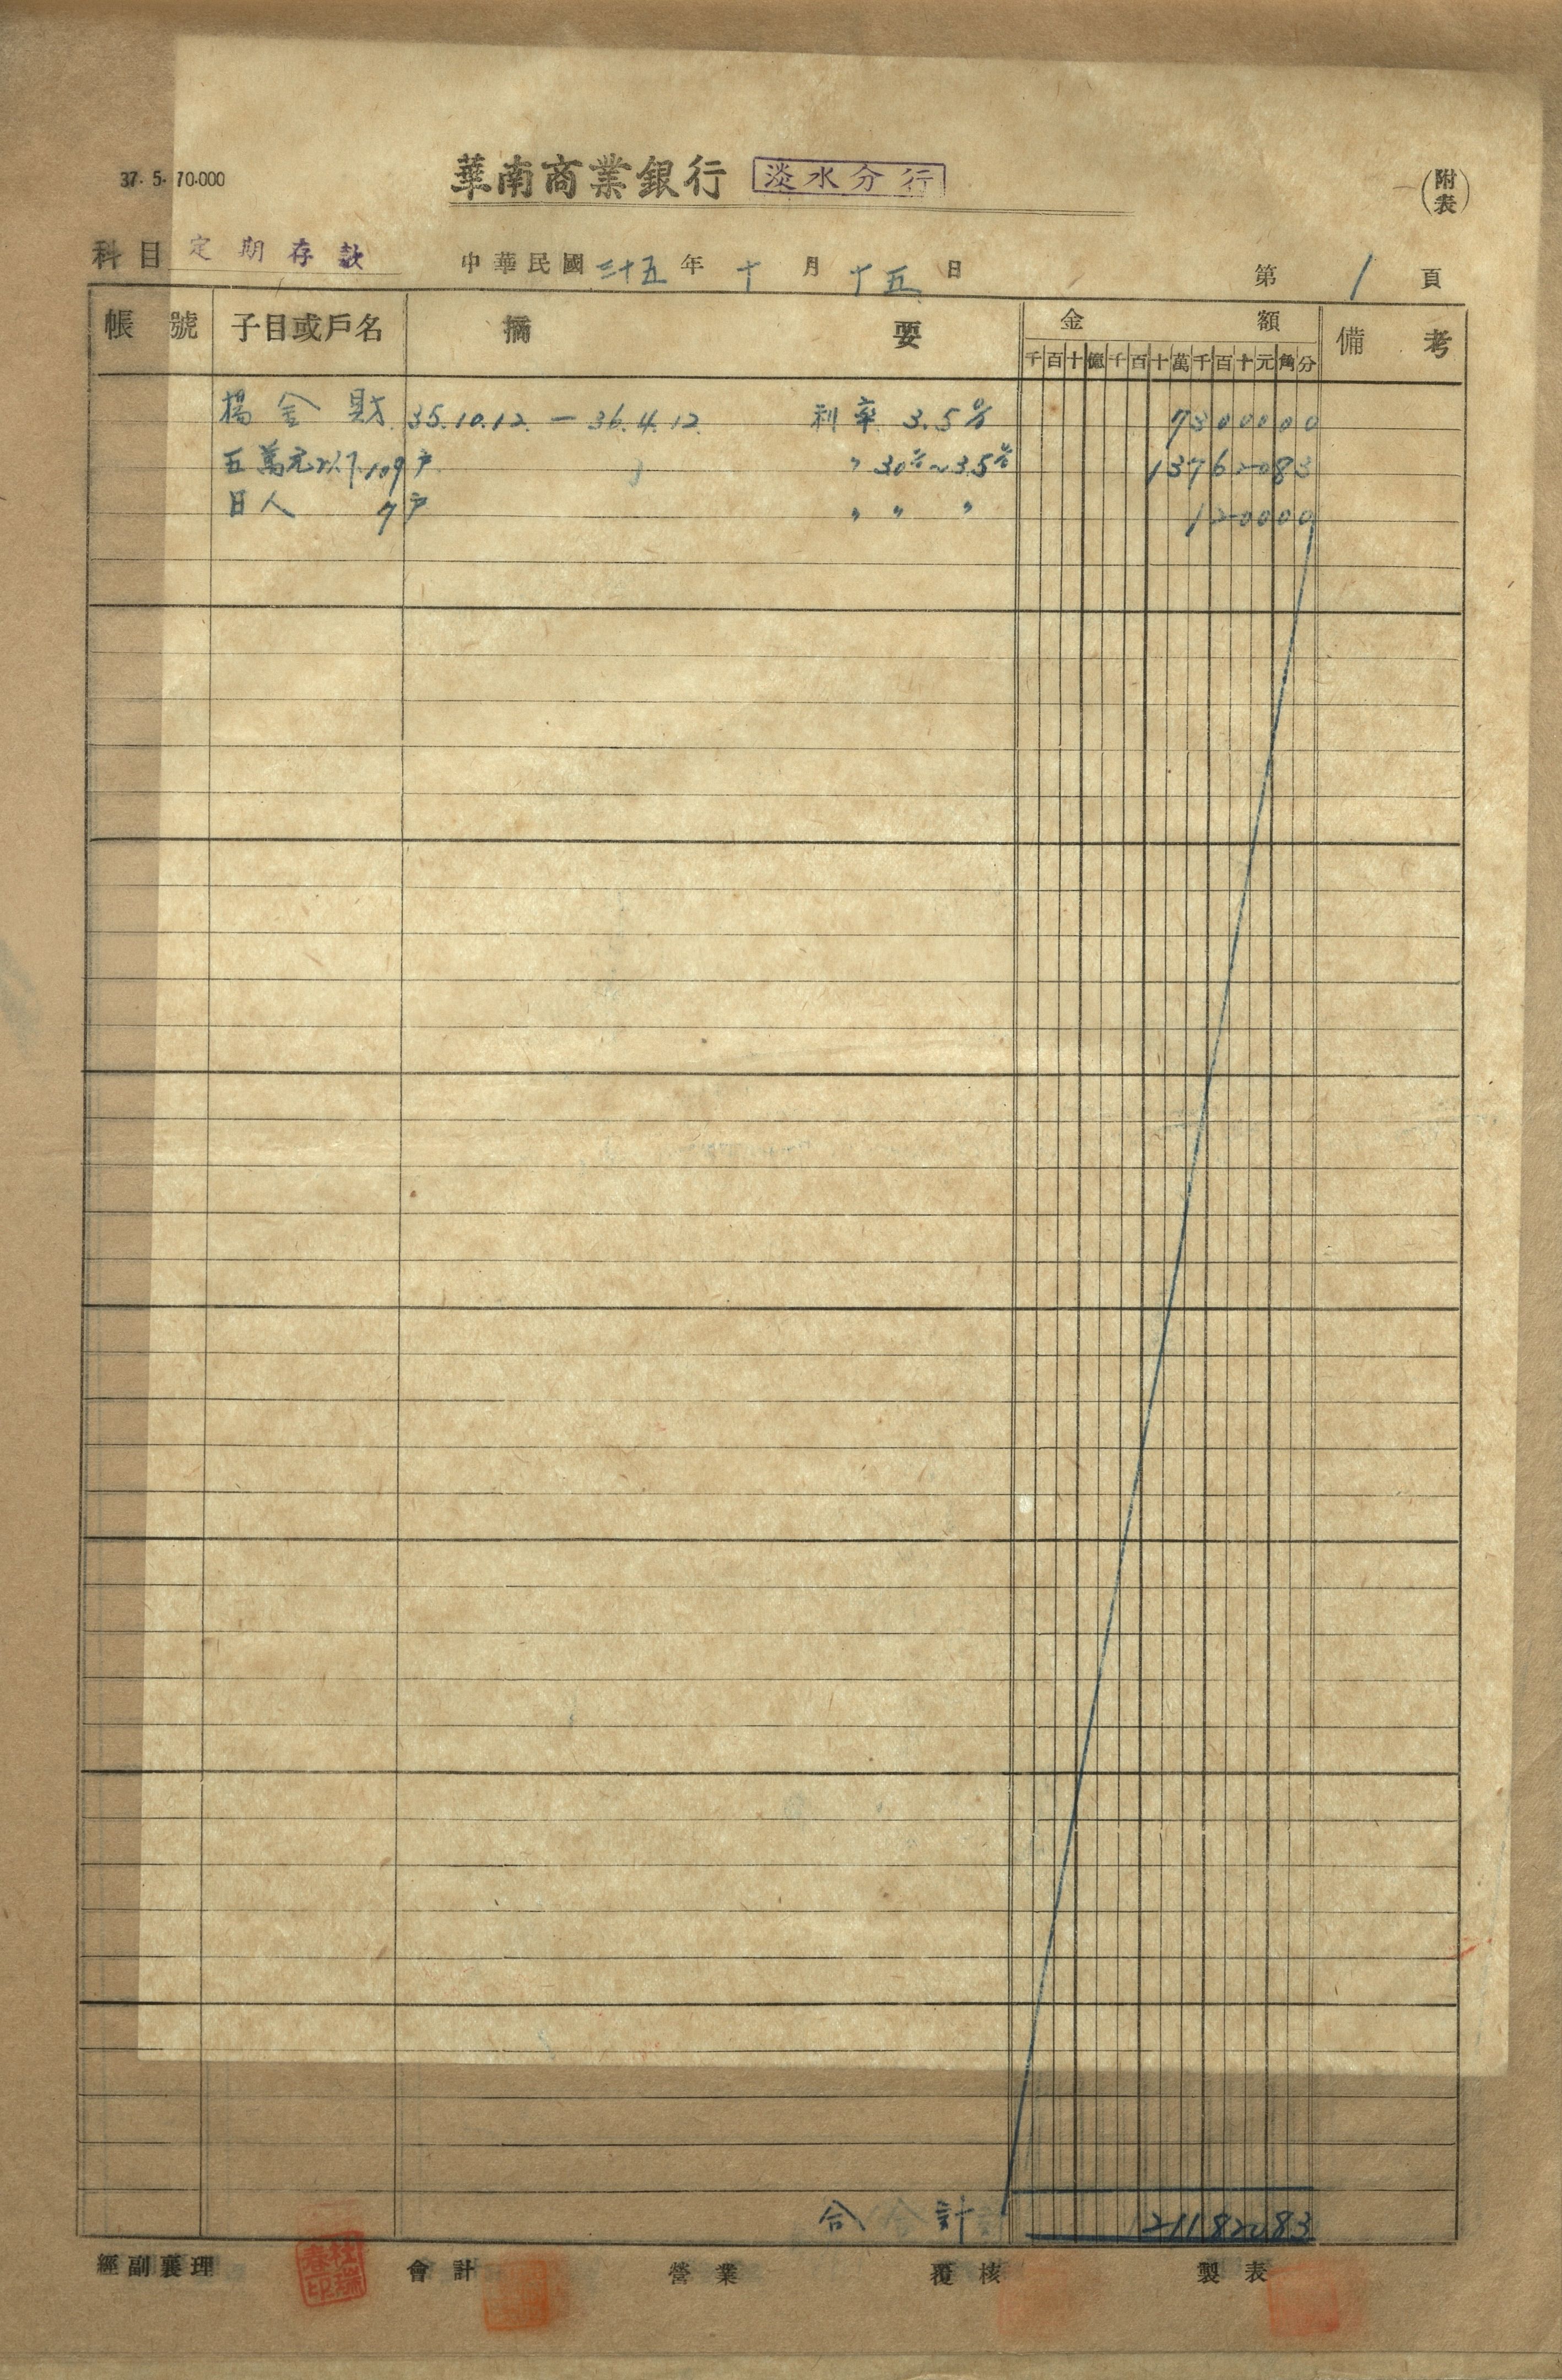 37. 5. 70.000
華南商業銀行 淡水分行
(附表)
科目 定期存款 中華民國 三十五 年 十 月 十五 日 第 1 頁
帳號 子目或戶名 摘要 金額 備考
千百十億千百十萬千百十元角分
楊金財 35.10.12. — 36.4.12. 利率 3.5% 7300000
五萬元以下109戶 〃 30%~3.5% 13762083
日人 7戶 〃 〃 〃 120000
合計 21182083
經副襄理 會計 營業 覆核 製表
杜瑞春印